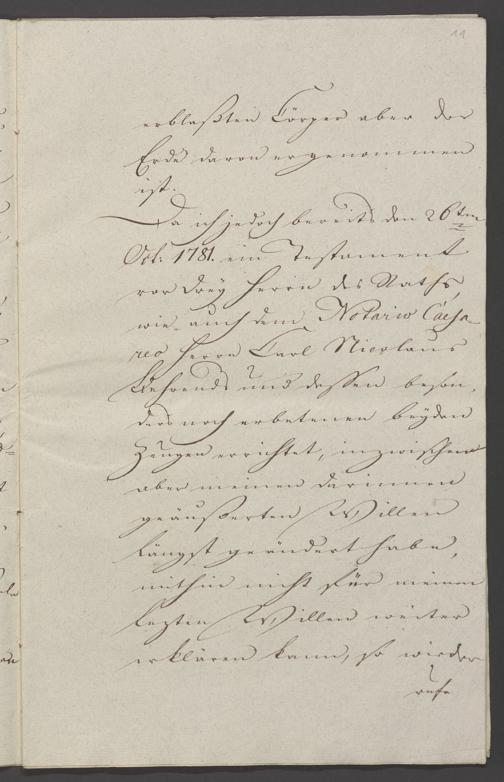 11
erblaßten Cörper aber der
Erde davon er genommen
ist.
Da ich jedoch bereits den 26ten
Oct: 1781. ein Testament
vor drey Herrn des Raths,
wie auch dem Notario Caesa
reo Herrn Carl Nicolaus
Behrends und dessen beson,
ders noch erbetenen beyden
Zeugen errichtet, inzwischen
aber meinen darinnen
geäußerten Willen
längst geändert habe,
mithin nicht für meinen
lezten Willen weiter
erklären kann, so wieder
rufe